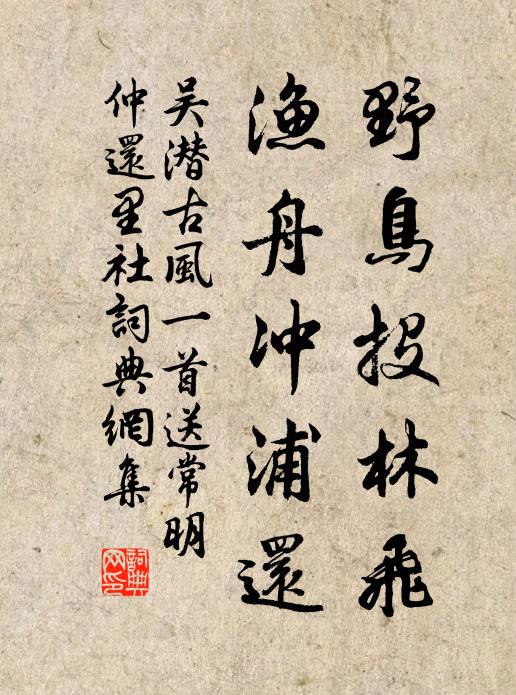 野鳥投林飛
漁舟冲浦還
吴潜古風一首送常明
仲還里社詞典網集
詞典網印